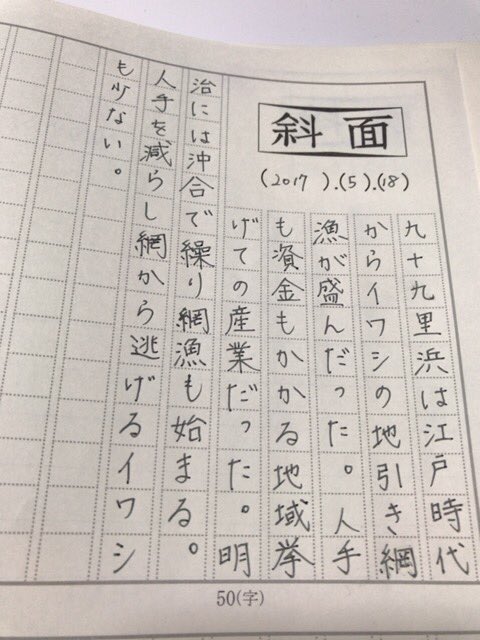 斜面
(2017 ).(5).(18)
九十九里浜は江戸時代
からイワシの地引き網
漁が盛んだった。人手
も資金もかかる地域挙
げての産業だった。明
治には沖合で繰り網漁も始まる。
人手を減らし網から逃げるイワシ
も少ない。
50(字)